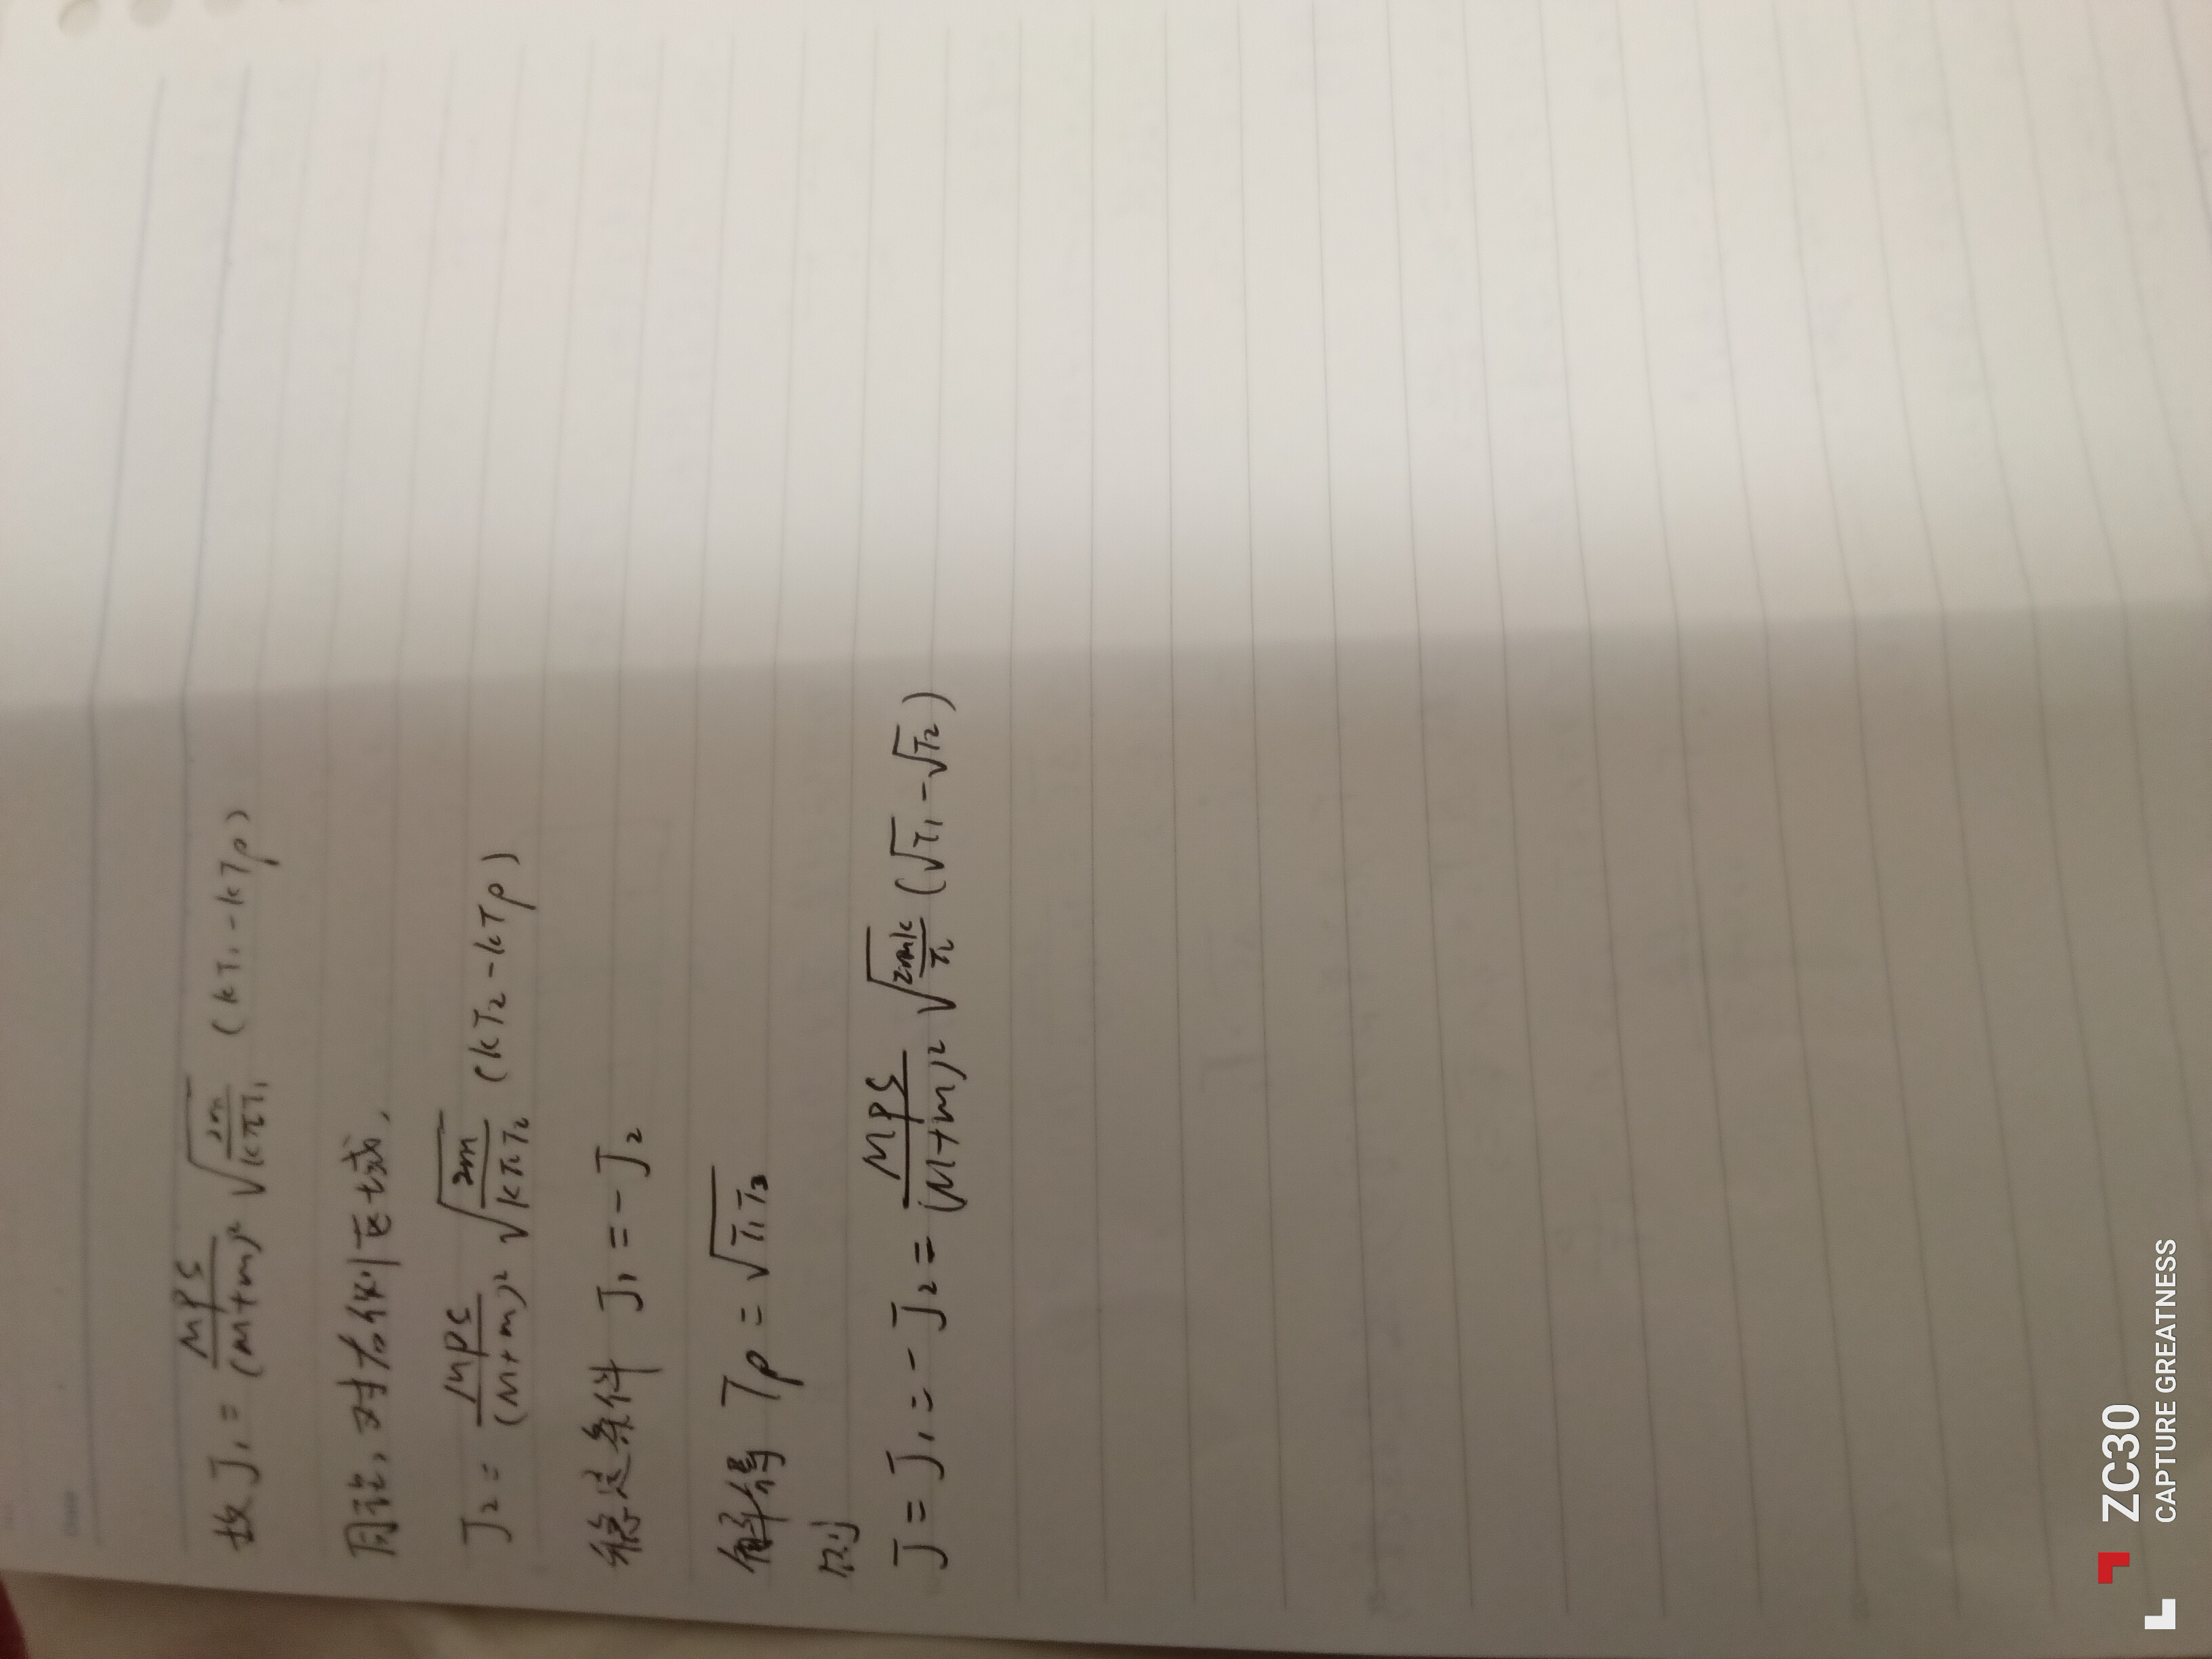 故 J₁ = \frac{MPS}{(M+m)²} \sqrt{\frac{2m}{kπT₁}} (kT₁-kTp)
同论, 对右侧区域,
J₂ = \frac{MPS}{(M+m)²} \sqrt{\frac{2m}{kπT₂}} (kT₂-kTp)
稳定条件 J₁ = -J₂
解得 Tp = \sqrt{T₁T₂}
则
J = J₁ = -J₂ = \frac{MPS}{(M+m)²} \sqrt{\frac{2mk}{π}} (√T₁ - √T₂)
ZC30
CAPTURE GREATNESS